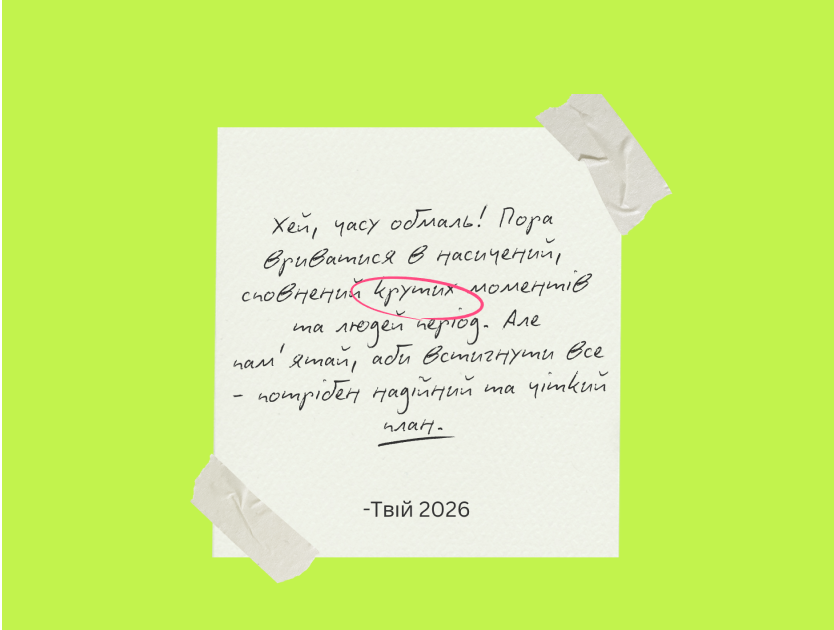 Хей, часу обмаль! Пора
вриватися в насичений,
сповнений крутих моментів
та людей період. Але
пам'ятай, аби встигнути все
- потрібен надійний та чіткий
план.
-Твій 2026